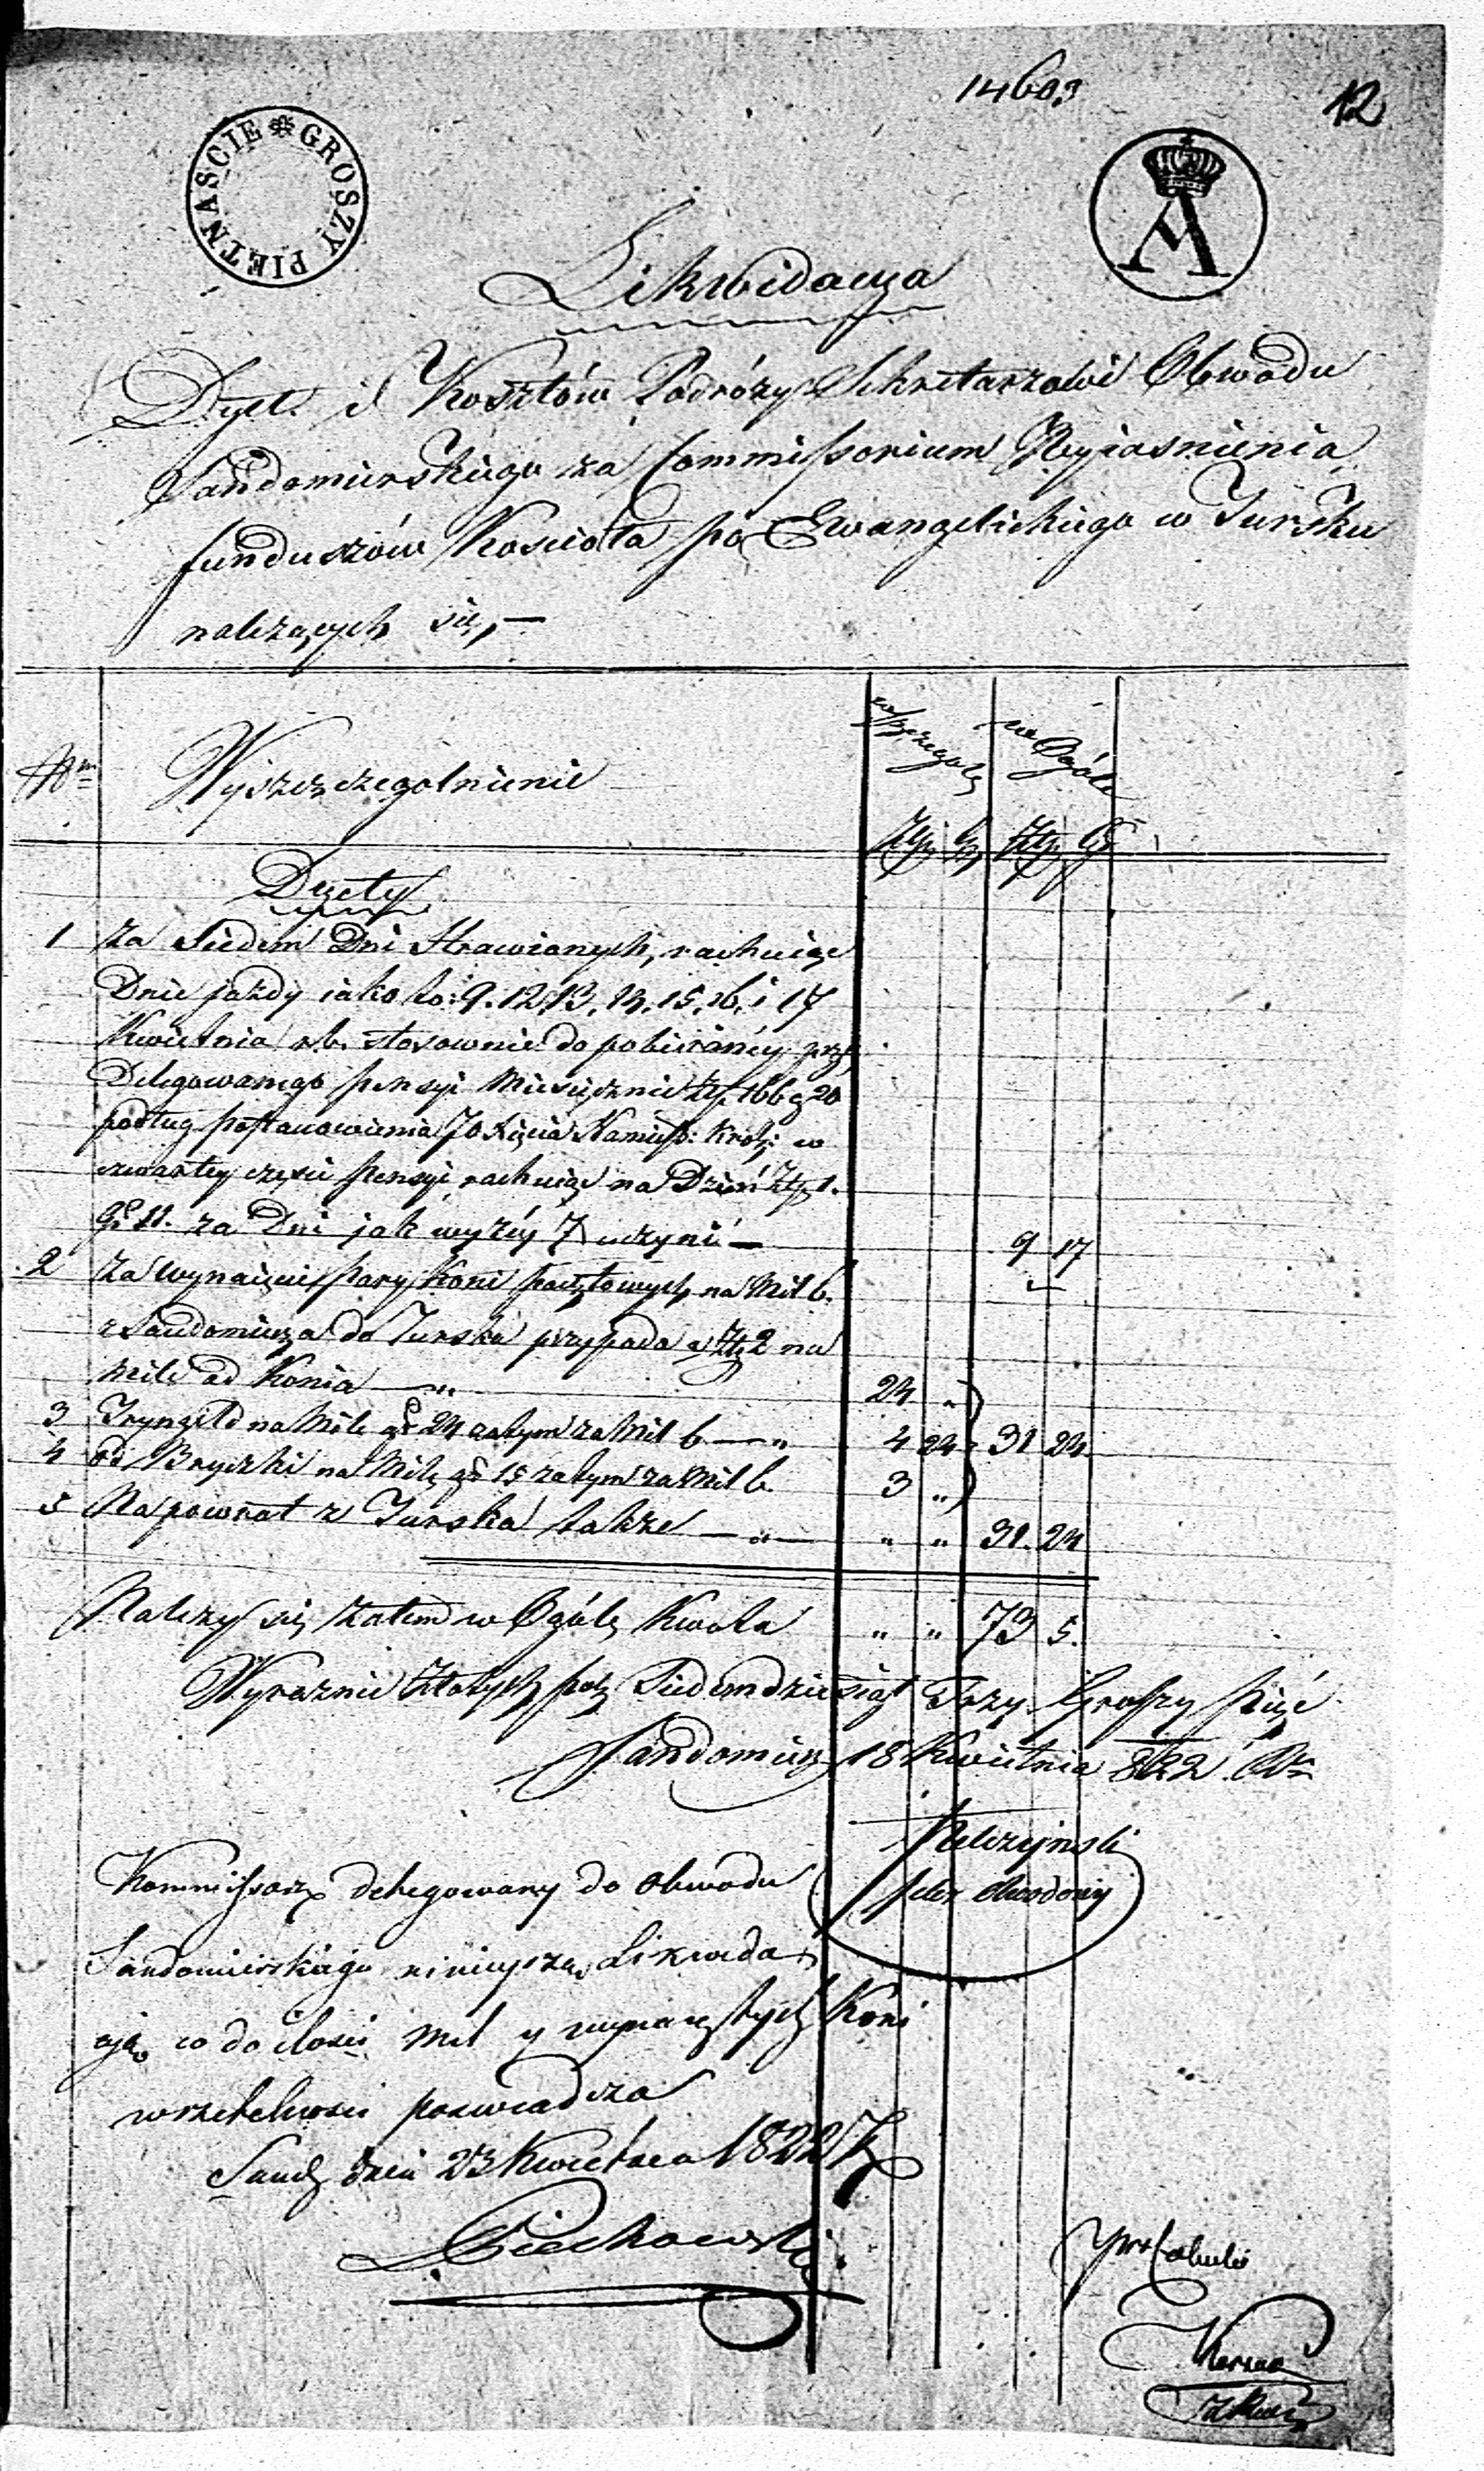 14603
12
GROSZY PIĘTNAŚCIE
A
Likwidacya
Dyet i Kosztów Podróży Sekretarzowi Obwodu
Sandomierskiego za Commissorium Wyiasnienia
funduszów Kościoła po Ewangelickiego w Jursku
należących się,—
Wyszczegolnienie
w szczegole
w Ogóle
Złp. Gr. Złp. Gr
Dyety
1 Za Siedem Dni Strawionych, rachuiąc
Dnie jazdy iako to: 9. 12. 13. 14. 15. 16. i 17
Kwietnia r.b. stosownie do pobieraney przez
Delegowanego pensyi Miesięcznie Złp. 166 g 20
podług postanowienia JO Xięcia Namiest: Król: w
czwartey części pensyi rachuiąc na Dzień Złp. 1.
gr 11. za Dni jak wyżey 7 uczyni — 9 17
2 Za wynaięcie Pary Koni pocztowych na Mil 6.
z Sandomierza do Jurska przypada a Złp 2 na
Milę od Konia — " 24 "
3 Tryngeld na Milę gr 24 zatym za Mil 6 — " 4 24 31 24
4 od Bryczki na Milę gr 15 zatym za Mil 6. 3 "
5 Na powrot z Jurska także — " — " " 31. 24
Należy się zatem w Ogóle Kwota " " 73 5.
Wyraznie Złotych pol Siedemdziesiąt Trzy Groszy pięć
Sandomierz 18 Kwietnia 1822
Sekr Obwodowy
Kommissarz delegowany do Obwodu
Sandomierskiego ninieyszą Likwida
cyą co do ilosci Mil y wynaiętych Koni
w rzetelnosci poswiadcza
Sand dnia 23 Kwietnia 1822
Piechowski